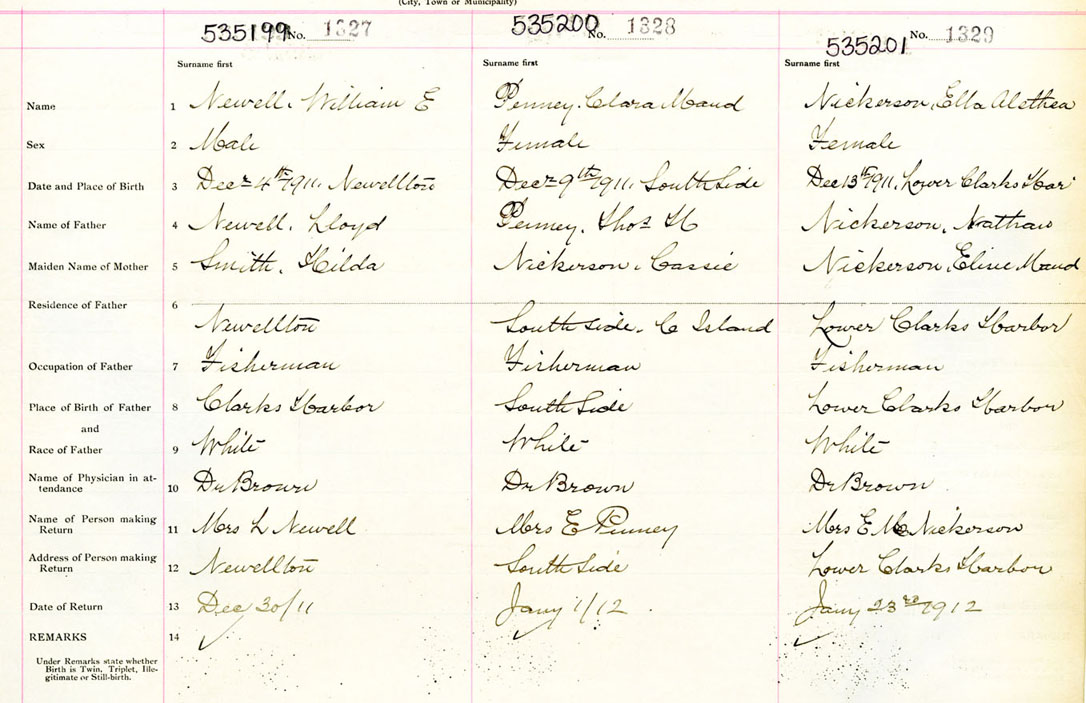 (City, Town or Municipality)
535199 No. 1327 535200 No. 1328 535201 No. 1329
Surname first Surname first Surname first
Name 1 Newell, William E Penney, Clara Maud Nickerson, Ella Alethea
Sex 2 Male Female Female
Date and Place of Birth 3 Decr 4th 1911, Newellton Decr 9th 1911, South Side Dec 13th 1911, Lower Clarks Har
Name of Father 4 Newell, Lloyd Penney, Thos H Nickerson, Nathan
Maiden Name of Mother 5 Smith, Hilda Nickerson, Cassie Nickerson, Maud
Residence of Father 6
Newellton South Side, C Island Lower Clarks Harbor
Occupation of Father 7 Fisherman Fisherman Fisherman
Place of Birth of Father 8 Clarks Harbor South Side Lower Clarks Harbor
and
Race of Father 9 White White White
Name of Physician in at-
tendance 10 Dr Brown Dr Brown Dr Brown
Name of Person making
Return 11 Mrs L Newell Mrs E Penney Mrs E M Nickerson
Address of Person making
Return 12 Newellton South Side Lower Clarks Harbor
Date of Return 13 Dec 30/11 Jany 1/12 Jany 23rd 1912
REMARKS 14
Under Remarks state whether
Birth is Twin, Triplet, Ille-
gitimate or Still-birth.